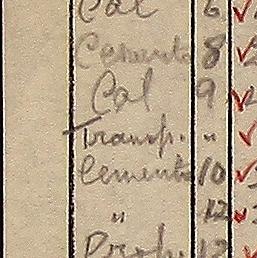 Cal 6 ✓
Cemento 8 ✓
Cal 9 ✓
Transp. " ✓
Cemento 10 ✓
" 12 ✓
12 ✓